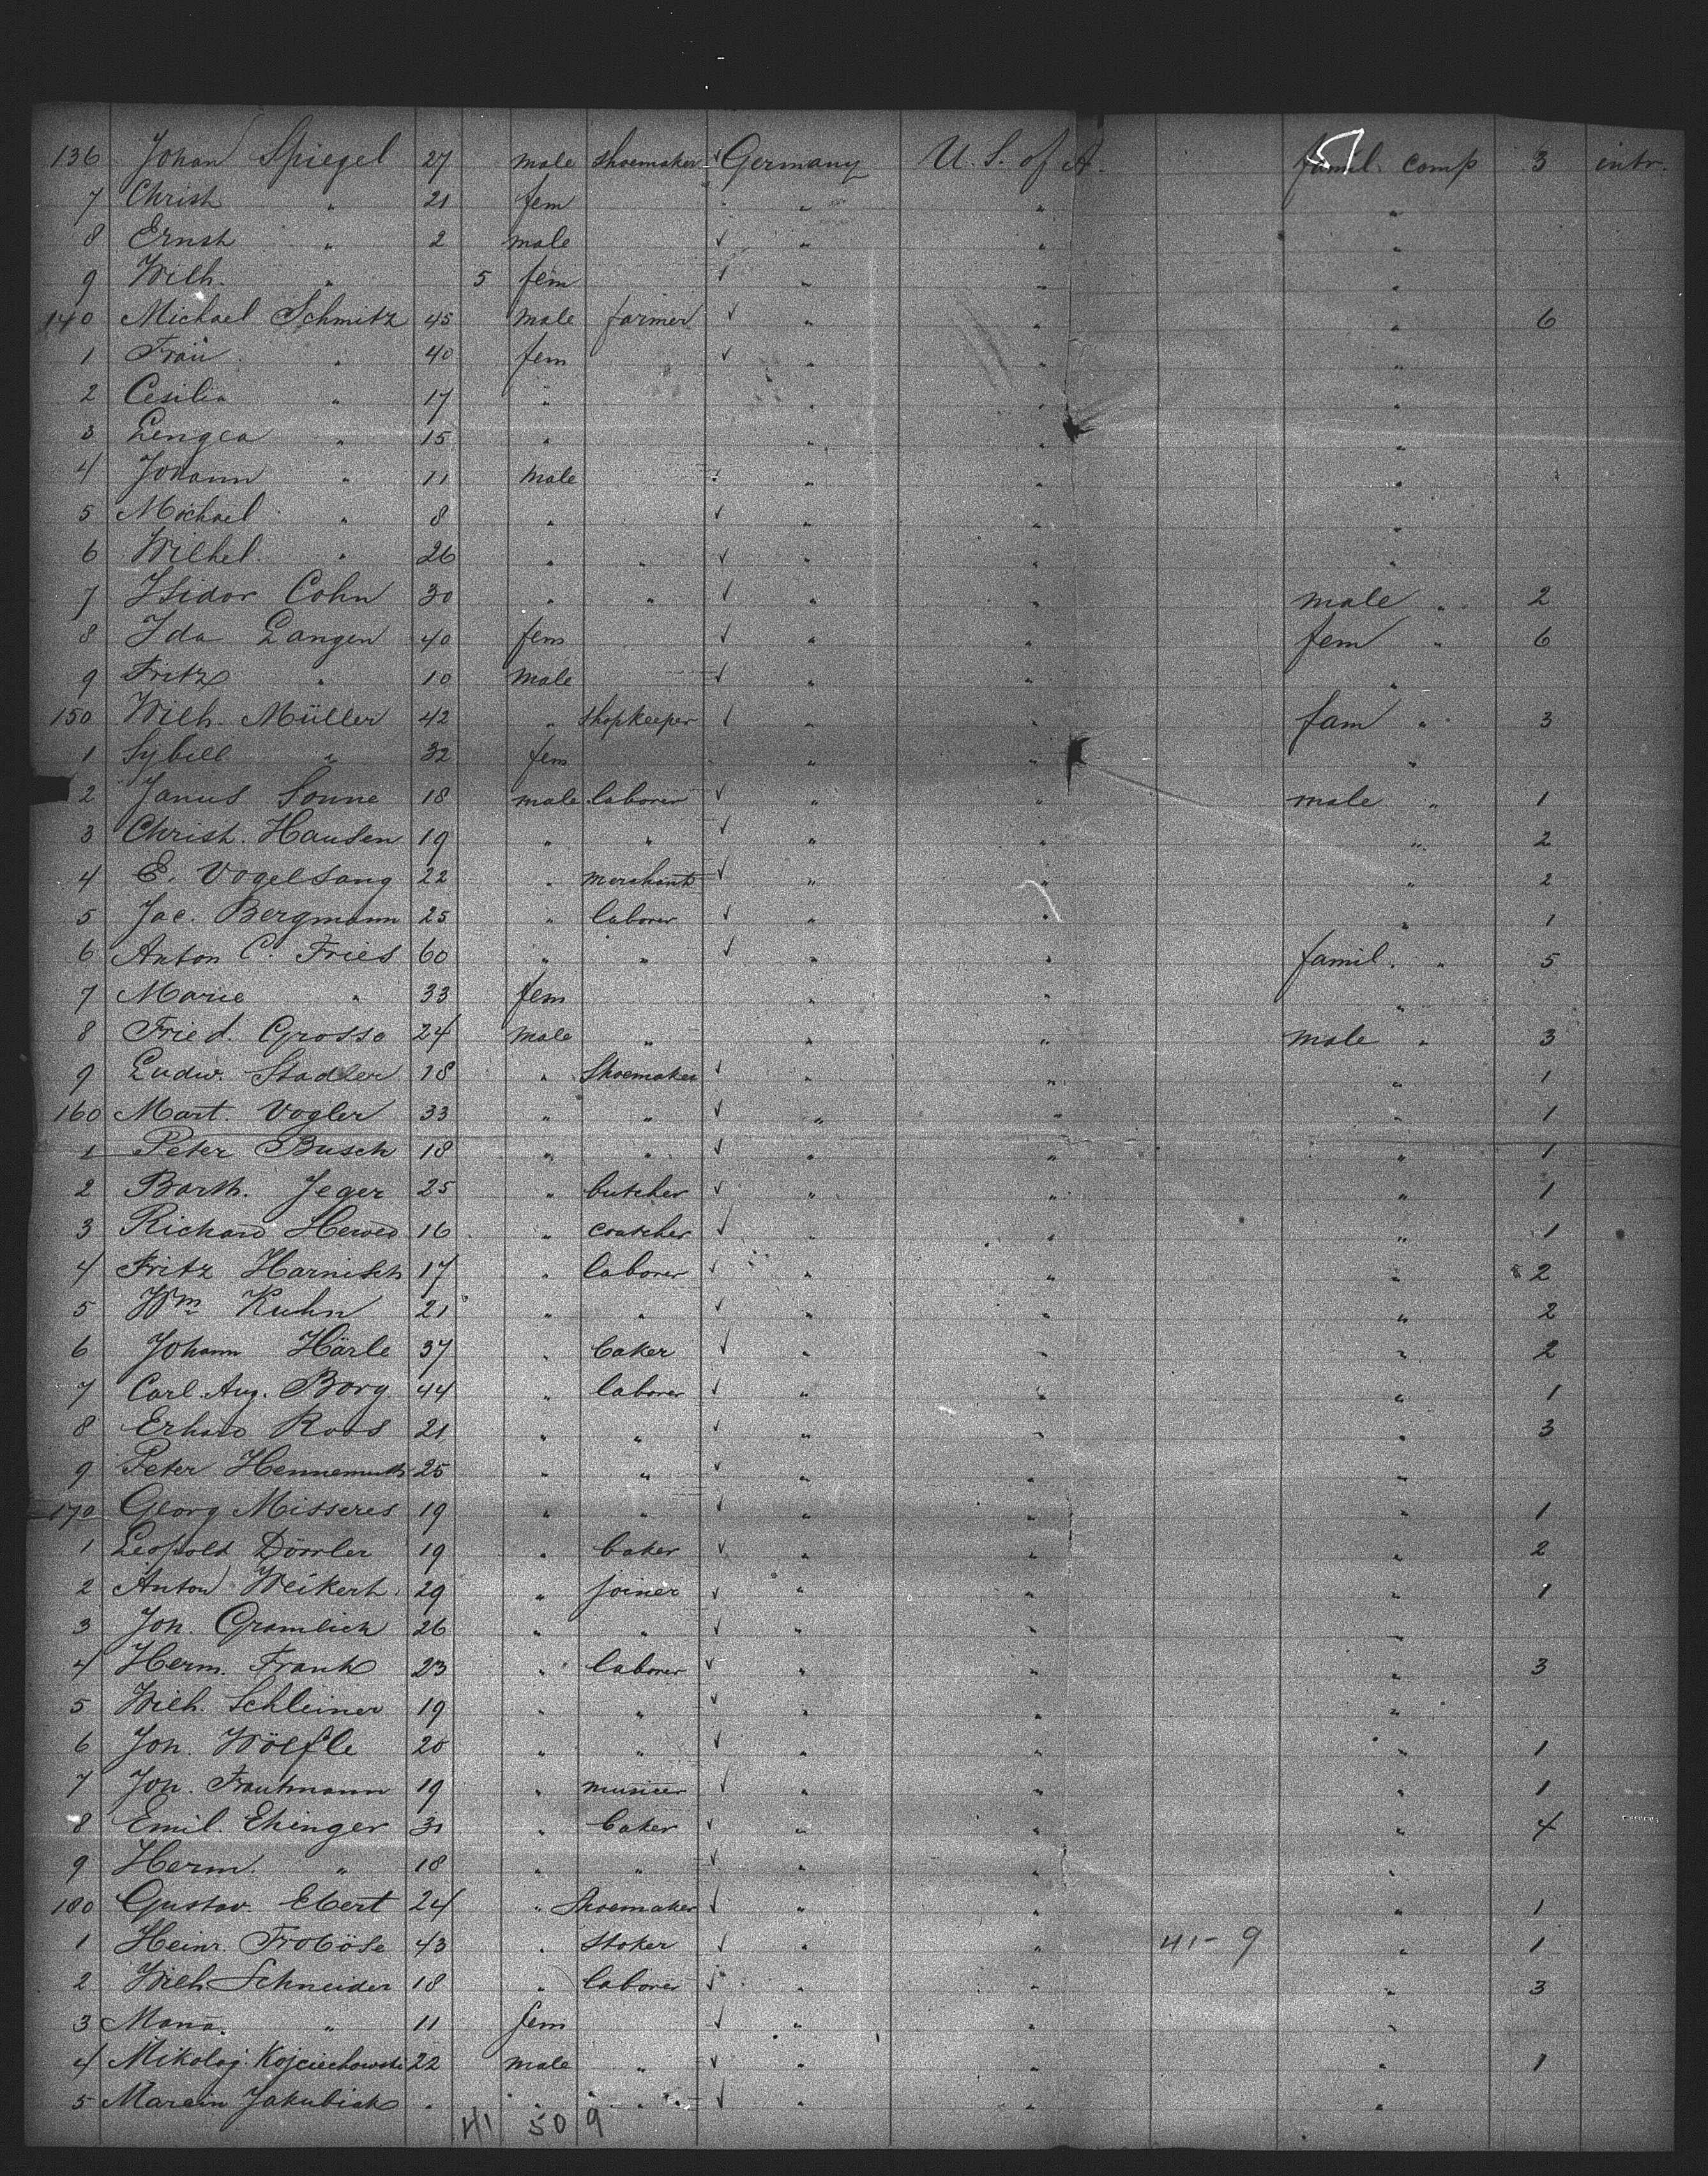 136 Johan Spiegel 27 male shoemaker ✓ Germany U. S. of A. famil. comp 3 intr.
7 Christ. " 21 fem " " "
8 Ernst " 2 male ✓ " " "
9 Wilh. " 5 fem ✓ " " "
140 Michael Schmitz 45 male farmer ✓ " " " 6
1 Frau " 40 fem ✓ " " "
2 Cesilia " 17 " " " "
3 " 15 " " " "
4 Johann " 11 male " " "
5 Michael " 8 " ✓ " " "
6 Wilhel. " 26 " " ✓ " " "
7 Isidor Cohn 30 " " ✓ " " male " 2
8 Ida Langen 40 fem ✓ " " fem " 6
9 Fritz " 10 male ✓ " " "
150 Wilh. Müller 42 " shopkeeper ✓ " " fam " 3
1 Sybill " 32 fem " " "
2 Janus Sonne 18 male laborer ✓ " " male " 1
3 Christ. Hansen 19 " " ✓ " " " 2
4 E. Vogelsang 22 " merchant ✓ " " " 2
5 Jac. Bergmann 25 " laborer ✓ " " " 1
6 Anton C. Fries 60 " " ✓ " " famil. " 5
7 Marie " 33 fem " " "
8 Fried. Grosse 24 male " " " male " 3
9 Ludw. Stadler 18 " Shoemaker ✓ " " " 1
160 Mart. Vogler 33 " " ✓ " " " 1
1 Peter Busch 18 " " ✓ " " " 1
2 Barth. Jeger 25 " butcher ✓ " " " 1
3 Richard 16 " coatcher ✓ " " " 1
4 Fritz Harnisch 17 " laborer ✓ " " " 2
5 Wm Kuhn 21 " " ✓ " " " 2
6 Johann Härle 37 " baker ✓ " " " 2
7 Carl. Aug. Borg 44 " laborer ✓ " " " 1
8 Erhard Roos 21 " " ✓ " " " 3
9 Peter Hennemuth 25 " " ✓ " " "
170 Georg Misseres 19 " " ✓ " " " 1
1 Leopold Dörrler 19 " baker ✓ " " " 2
2 Anton Weikert 29 " joiner ✓ " " " 1
3 Joh. Gramlich 26 " " ✓ " " "
4 Herm. Frank 23 " laborer ✓ " " " 3
5 Wilh. Schleiner 19 " " ✓ " " "
6 Joh. Wölfle 20 " " ✓ " " " 1
7 Joh. Trautmann 19 " musicer ✓ " " " 1
8 Emil. Ehinger 31 " baker ✓ " " " 4
9 Herm. " 18 " " ✓ " " "
180 Gustav. Ebert 24 " Shoemaker ✓ " " " 1
1 Heinr. Froböse 43 " stoker ✓ " " 41-9 " 1
2 Wilh. Schneider 18 " laborer ✓ " " " 3
3 Maria " 11 fem ✓ " " "
4 Mikolaj. Kojciechowski 22 male " ✓ " " " 1
5 Marcin Jakubiak " " " ✓ " " "
41 50 9